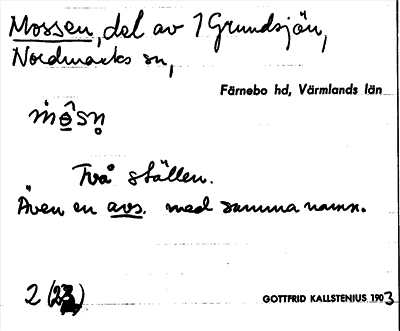 Mossen, del av 1 Grundsjön,
Nordmarks sn,
Färnebo hd, Värmlands län
Två ställen.
Även en avs. med samma namn.
2
GOTTFRID KALLSTENIUS 1903